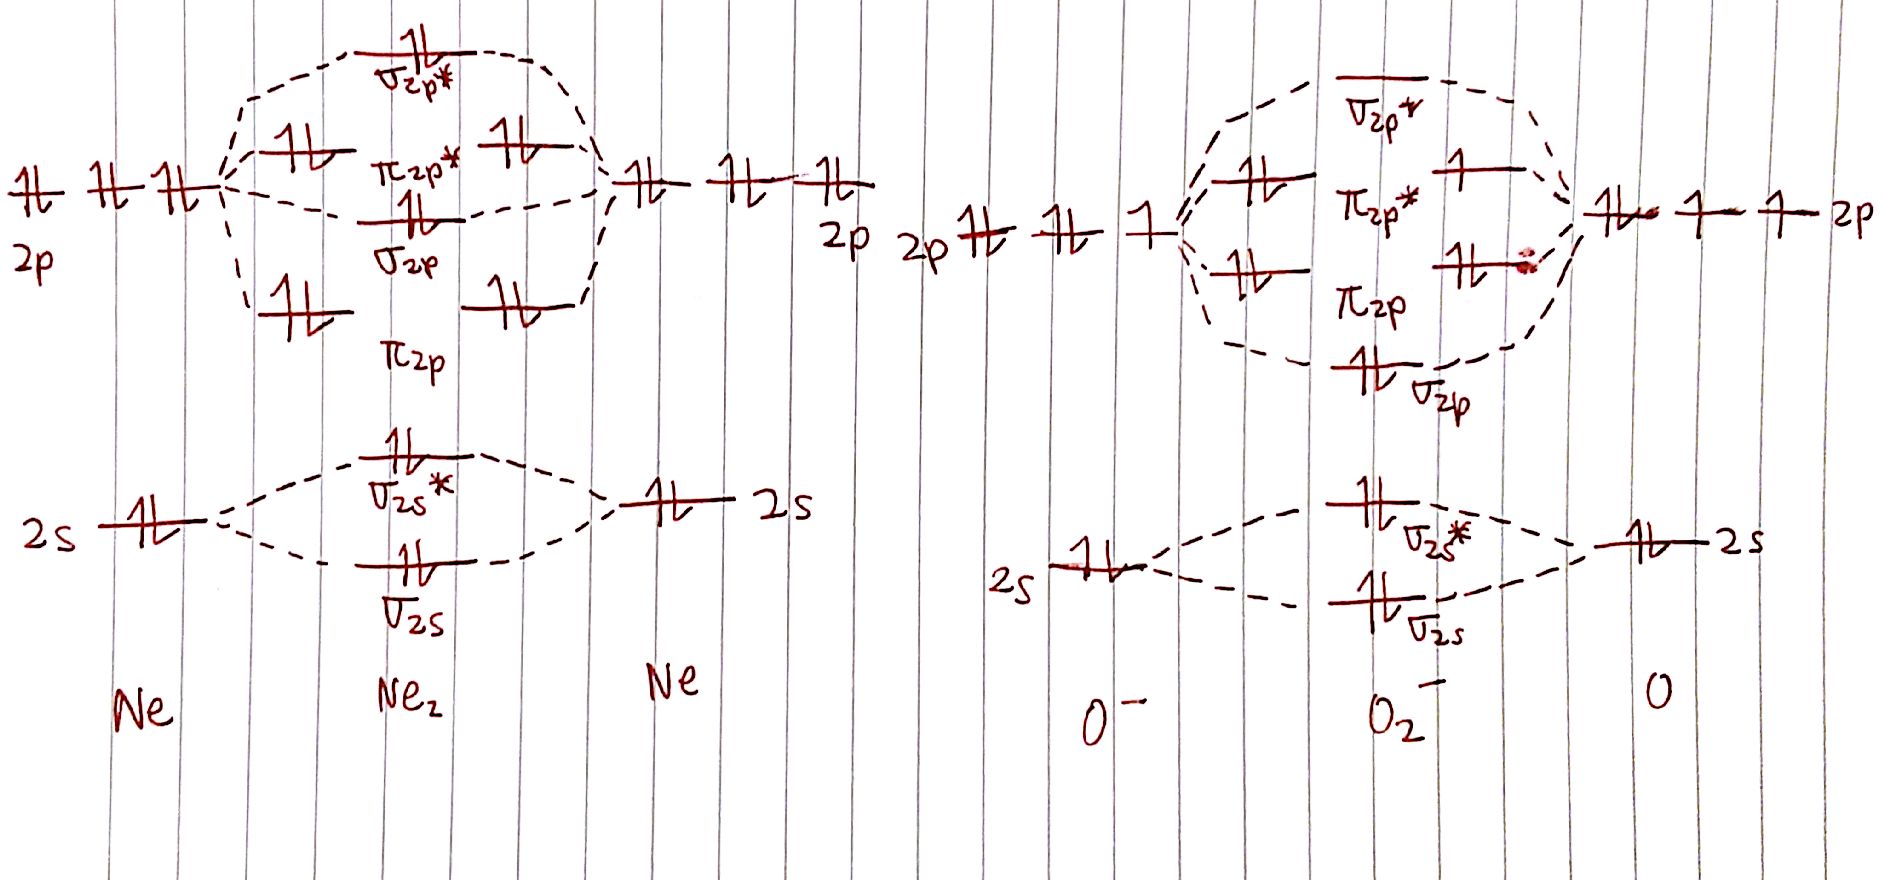 σ2p*
π2p*
2p
σ2p
2p
π2p
σ2s*
2s
2s
σ2s
Ne
Ne2
Ne
σ2p*
π2p*
2p
2p
π2p
σ2p
σ2s*
2s
2s
σ2s
O⁻
O2⁻
O